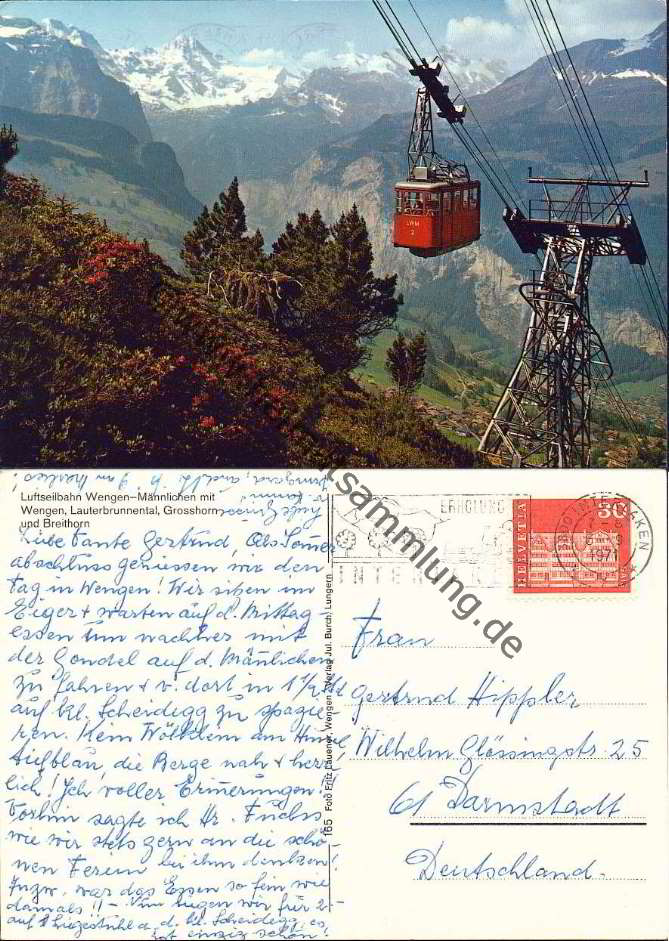 LWM
2
Luftseilbahn Wengen–Männlichen mit
Wengen, Lauterbrunnental, Grosshorn
und Breithorn
Liebe Tante Gertrud, Als Somer
abschluss geniessen wir den
Tag in Wengen! Wir sitzen im
Eiger + warten auf d. Mittag-
essen um nachher mit
der Gondel auf d. Mänlichen
zu fahren + v. dort in 1 1/2 Std
auf kl. Scheidegg zu spazie-
ren. Kein Wölklein am Himel
tiefblau, die Berge nah + herr-
lich! Ich voller Erinerungen!
Vorhin sagte ich Hr. Fuchs
wie wir stets gern an die schö-
nen Ferien bei ihm denken!
Inzw. war das Essen so fein wie
damals!! – Nun liegen wir für 2.-
auf Liegestühle a. d. kl. Scheidegg, es
ist einzig schön!
165 Foto Fritz Lauener, Wengen Verlag Jul. Burch, Lungern
HELVETIA
50
3800 INTERLAKEN
1971
Frau
Gertrud Hippler
Wilhelm Glässingstr. 25
61 Darmstadt
Deutschland.
tsammlung.de